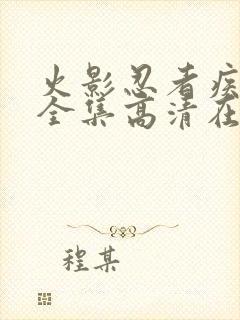 火影忍者疾
全集高清在
程某